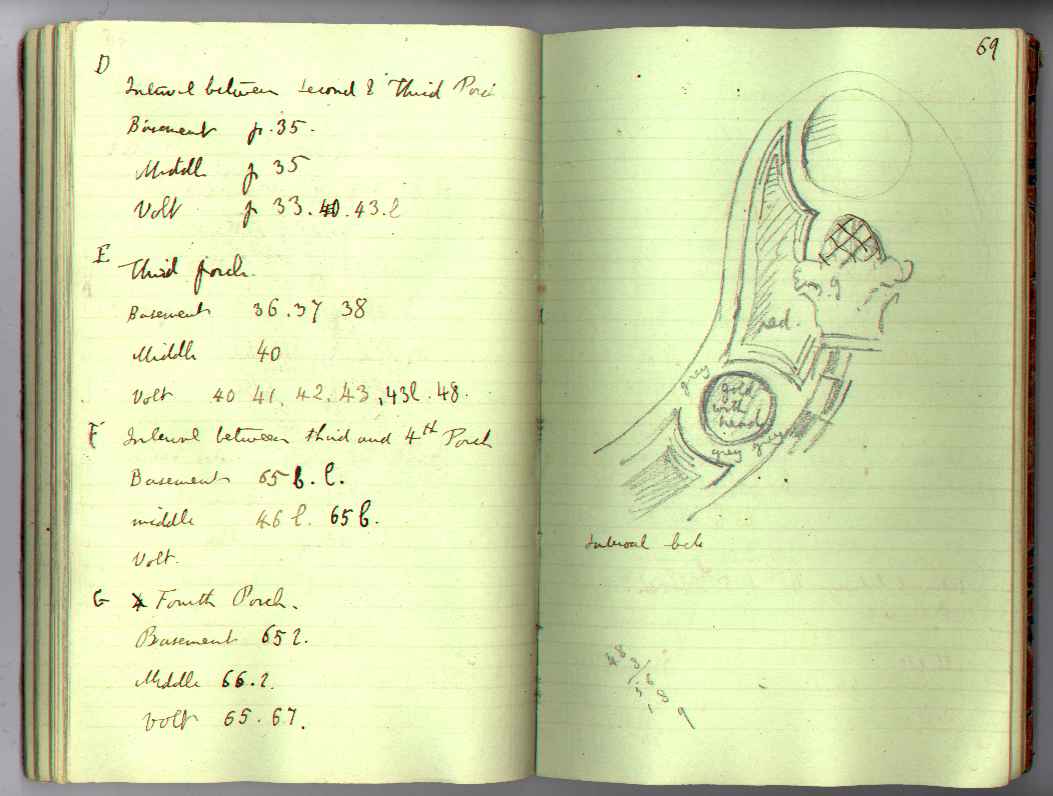 D
Interval between second & Third Porch
Basement p. 35.
Middle p 35
Volt p 33. 40. 43. l
E
Third porch.
Basement 36. 37 38
Middle 40
Volt 40 41. 42. 43, 43l. 48.
F Interval between third and 4th Porch
Basement 65 b. l.
middle 46 l. 65 b.
Volt.
G Fourth Porch.
Basement 65 l.
Middle 66. l.
Volt 65. 67.
69
g
red.
grey
gold
with
head
grey grey
Interval